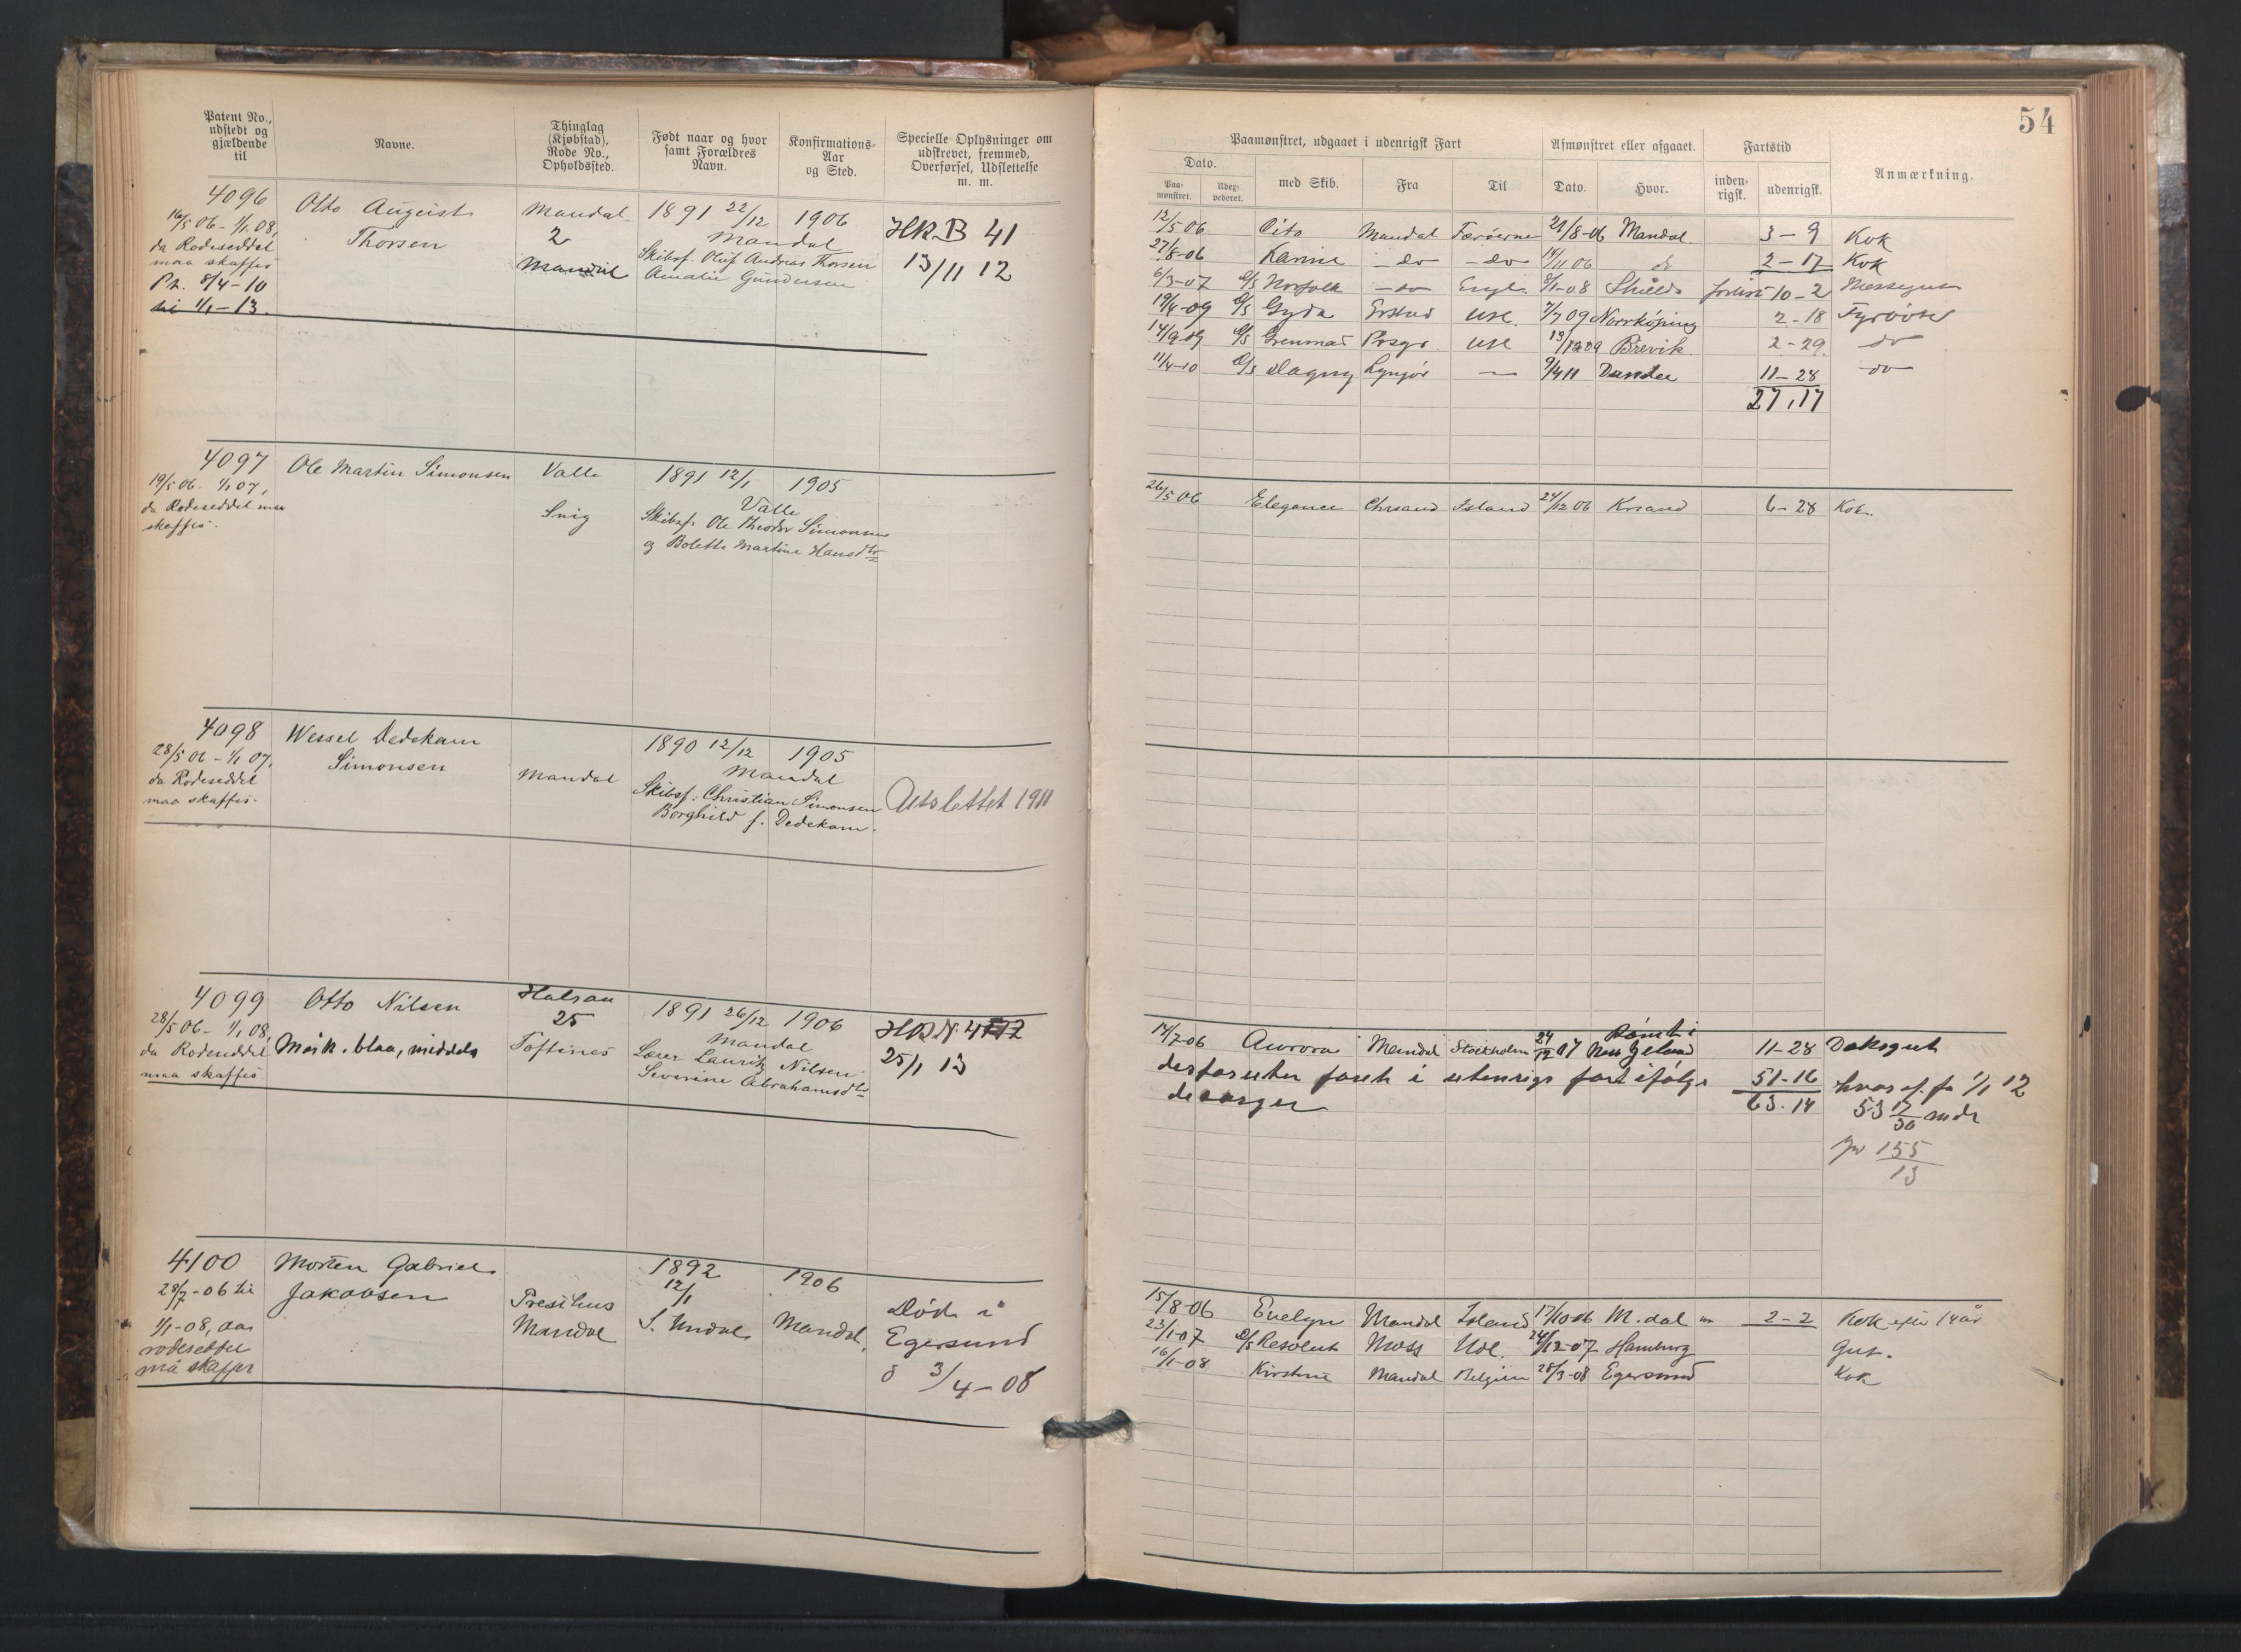 Patent No., udstedt og gjældende til
Navne.
Thinglag (Kjøbstad), Rode No., Opholdssted.
Født naar og hvor samt Forældres Navn.
Konfirmations- Aar og Sted.
Specielle Oplysninger om udskrevet, fremmed, Overførsel, Udslettelse m. m.
4096
16/5 06 - 1/1 08,
da Rodeseddel
maa skaffes
Pr. 8/4-10
til 1/1-13.
Otto August
Thorsen
Mandal
2
Mandal
1891 22/12
1906
Mandal
Skibsf. Oluf Andreas Thorsen
Amalie Gundersen
HKB 41
13/11 12
4097
19/5 06 - 1/1 07,
da Rodeseddel maa
skaffes.
Ole Martin Simonsen
Valle
Snig
1891 12/1
1905
Valle
Skibsf. Ole Theodor Simonsen
og Bolette Martine Hansdtr
4098
28/5 06 - 1/1 07,
da Rodeseddel
maa skaffes.
Wessel Dedekam
Simonsen
Mandal
1890 12/12
1905
Mandal
Skibsf. Christian Simonsen
Borghild f. Dedekam.
Utslettet 1911
4099
28/5 06 - 1/1 08,
da Rodeseddel
maa skaffes
Otto Nilsen
Mørk. blaa, middels
Halsaa
25
Toftenes
1891 26/12
1906
Mandal
Lærer Lauritz Nilsen
Severine Abrahamsdtr
25/1 13
4100
28/7-06 til
1/1-08, da
rodeseddel
må skaffes
Morten Gabriel
Jakobsen
Presthus
Mandal
1892
12/1
S. Undal
1906
Mandal
Død i
Egersund
d 3/4-08
54
Paamønstret, udgaaet i udenrigsk Fart
Afmønstret eller afgaaet.
Fartstid
Anmærkning.
Dato.
Paa- mønstret.
Udex- pederet.
med Skib.
Fra
Til
Dato.
Hvor.
inden- rigsk.
udenrigsk.
12/5 06 Otto Mandal Færøerne 21/8-06 Mandal 3-9 Kok
27/8-06 Karine -do -do 14/11 06 do 2-17 Kok
6/3-07 D/S Norfolk -do Engl. 8/1-08 Shields forlist 10-2 Messegut
19/4-09 D/S Gyda Erstad Utl. 7/7 09 Norrköping 2-18 Fyrbøter
14/9 09 D/S Grenmar Prsgr Utl 13/12 09 Brevik 2-29 do
11/4-10 D/S Dagny Lyngør — 9/4 11 Dundee 11-28 do
27,17
26/5 06 Elegance Chrsand Island 24/12 06 Krsand 6-28 Kok.
14/7-06 Aurora Mandal Stockholm 24/12 07 Rømt i New Zeland 11-28 Dæksgut
desforuten faret i utenrigs fart ifølge 51-16 hvoraf fra 1/1 12
63-14 53 17/30 mdr
155
13
15/8-06 Evelyn Mandal Island 17/10 06 M.dal 2-2 Kok efter 14 år
23/1-07 D/S Resolut Moss Utl. 24/12-07 Hamburg Gut.
16/1-08 Kirstine Mandal Belgien 28/3-08 Egersund Kok